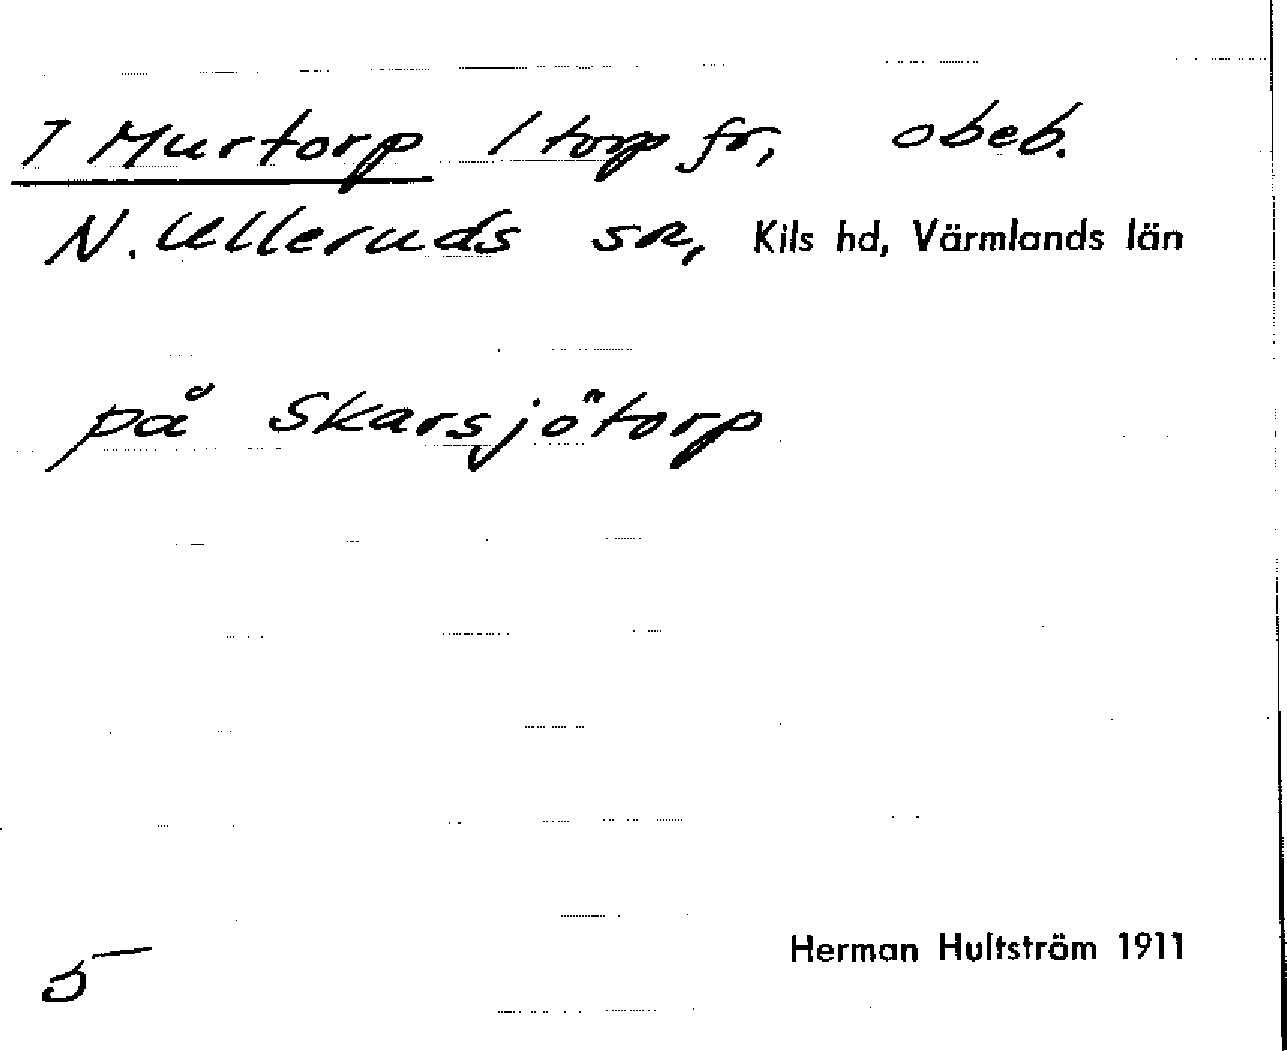 7 Murtorp 1 torp fr, obeb.
N. Ulleruds sn, Kils hd, Värmlands län
på Skarsjötorp
5
Herman Hultström 1911